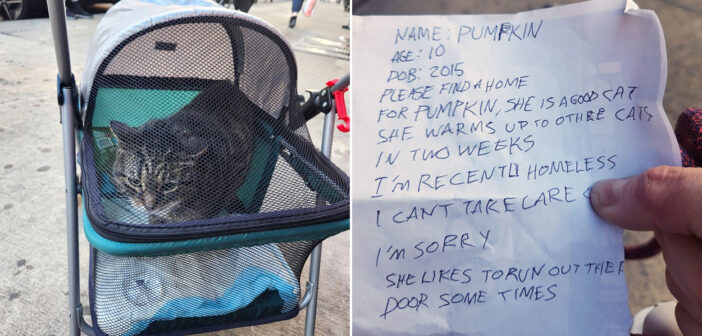 NAME: PUMPKIN
AGE: 10
DOB: 2015
PLEASE FIND A HOME
FOR PUMPKIN, SHE IS A GOOD CAT
SHE WARMS UP TO OTHRE CATS
IN TWO WEEKS
I'M RECENTLY HOMELESS
I CANT TAKE CARE
I'M SORRY
SHE LIKES TO RUN OUT THE
DOOR SOME TIMES